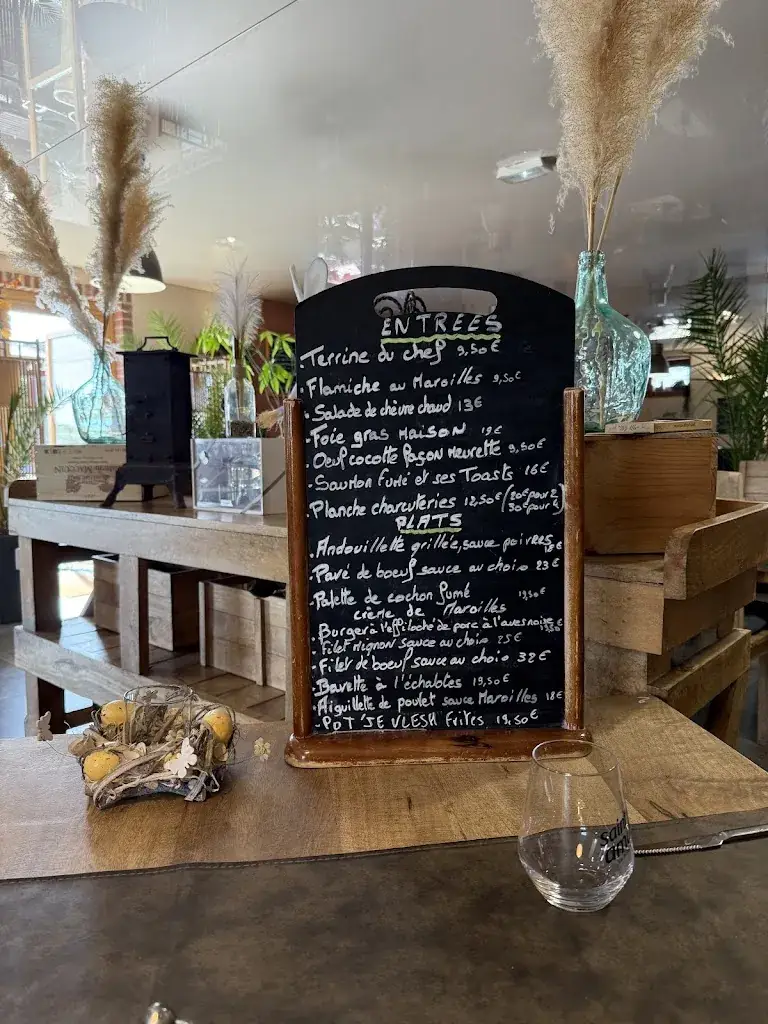 ENTREES
. Terrine du chef 9,50€
. Flamiche au Maroilles 9,50€
. Salade de chèvre chaud 13€
. Foie gras MAISON 19€
. Oeuf cocotte façon meurette 9,50€
. Saumon fumé et ses Toasts 16€
. Planche charcuteries 12,50€ (20€ pour 2
30€ pour 4)
PLATS
. Andouillette grillée, sauce poivres
. Pavé de boeuf sauce au choix 23€
. Palette de cochon fumé
crème de Maroilles
. Burger à l'effiloché de porc à l'avesnoise
. Filet mignon sauce au choix 25€
. Filet de boeuf sauce au choix 32€
. Bavette à l'échalotes 19,50€
. Aiguillette de poulet sauce Maroilles 18€
. POT'JE VLESH Frites 19,50€